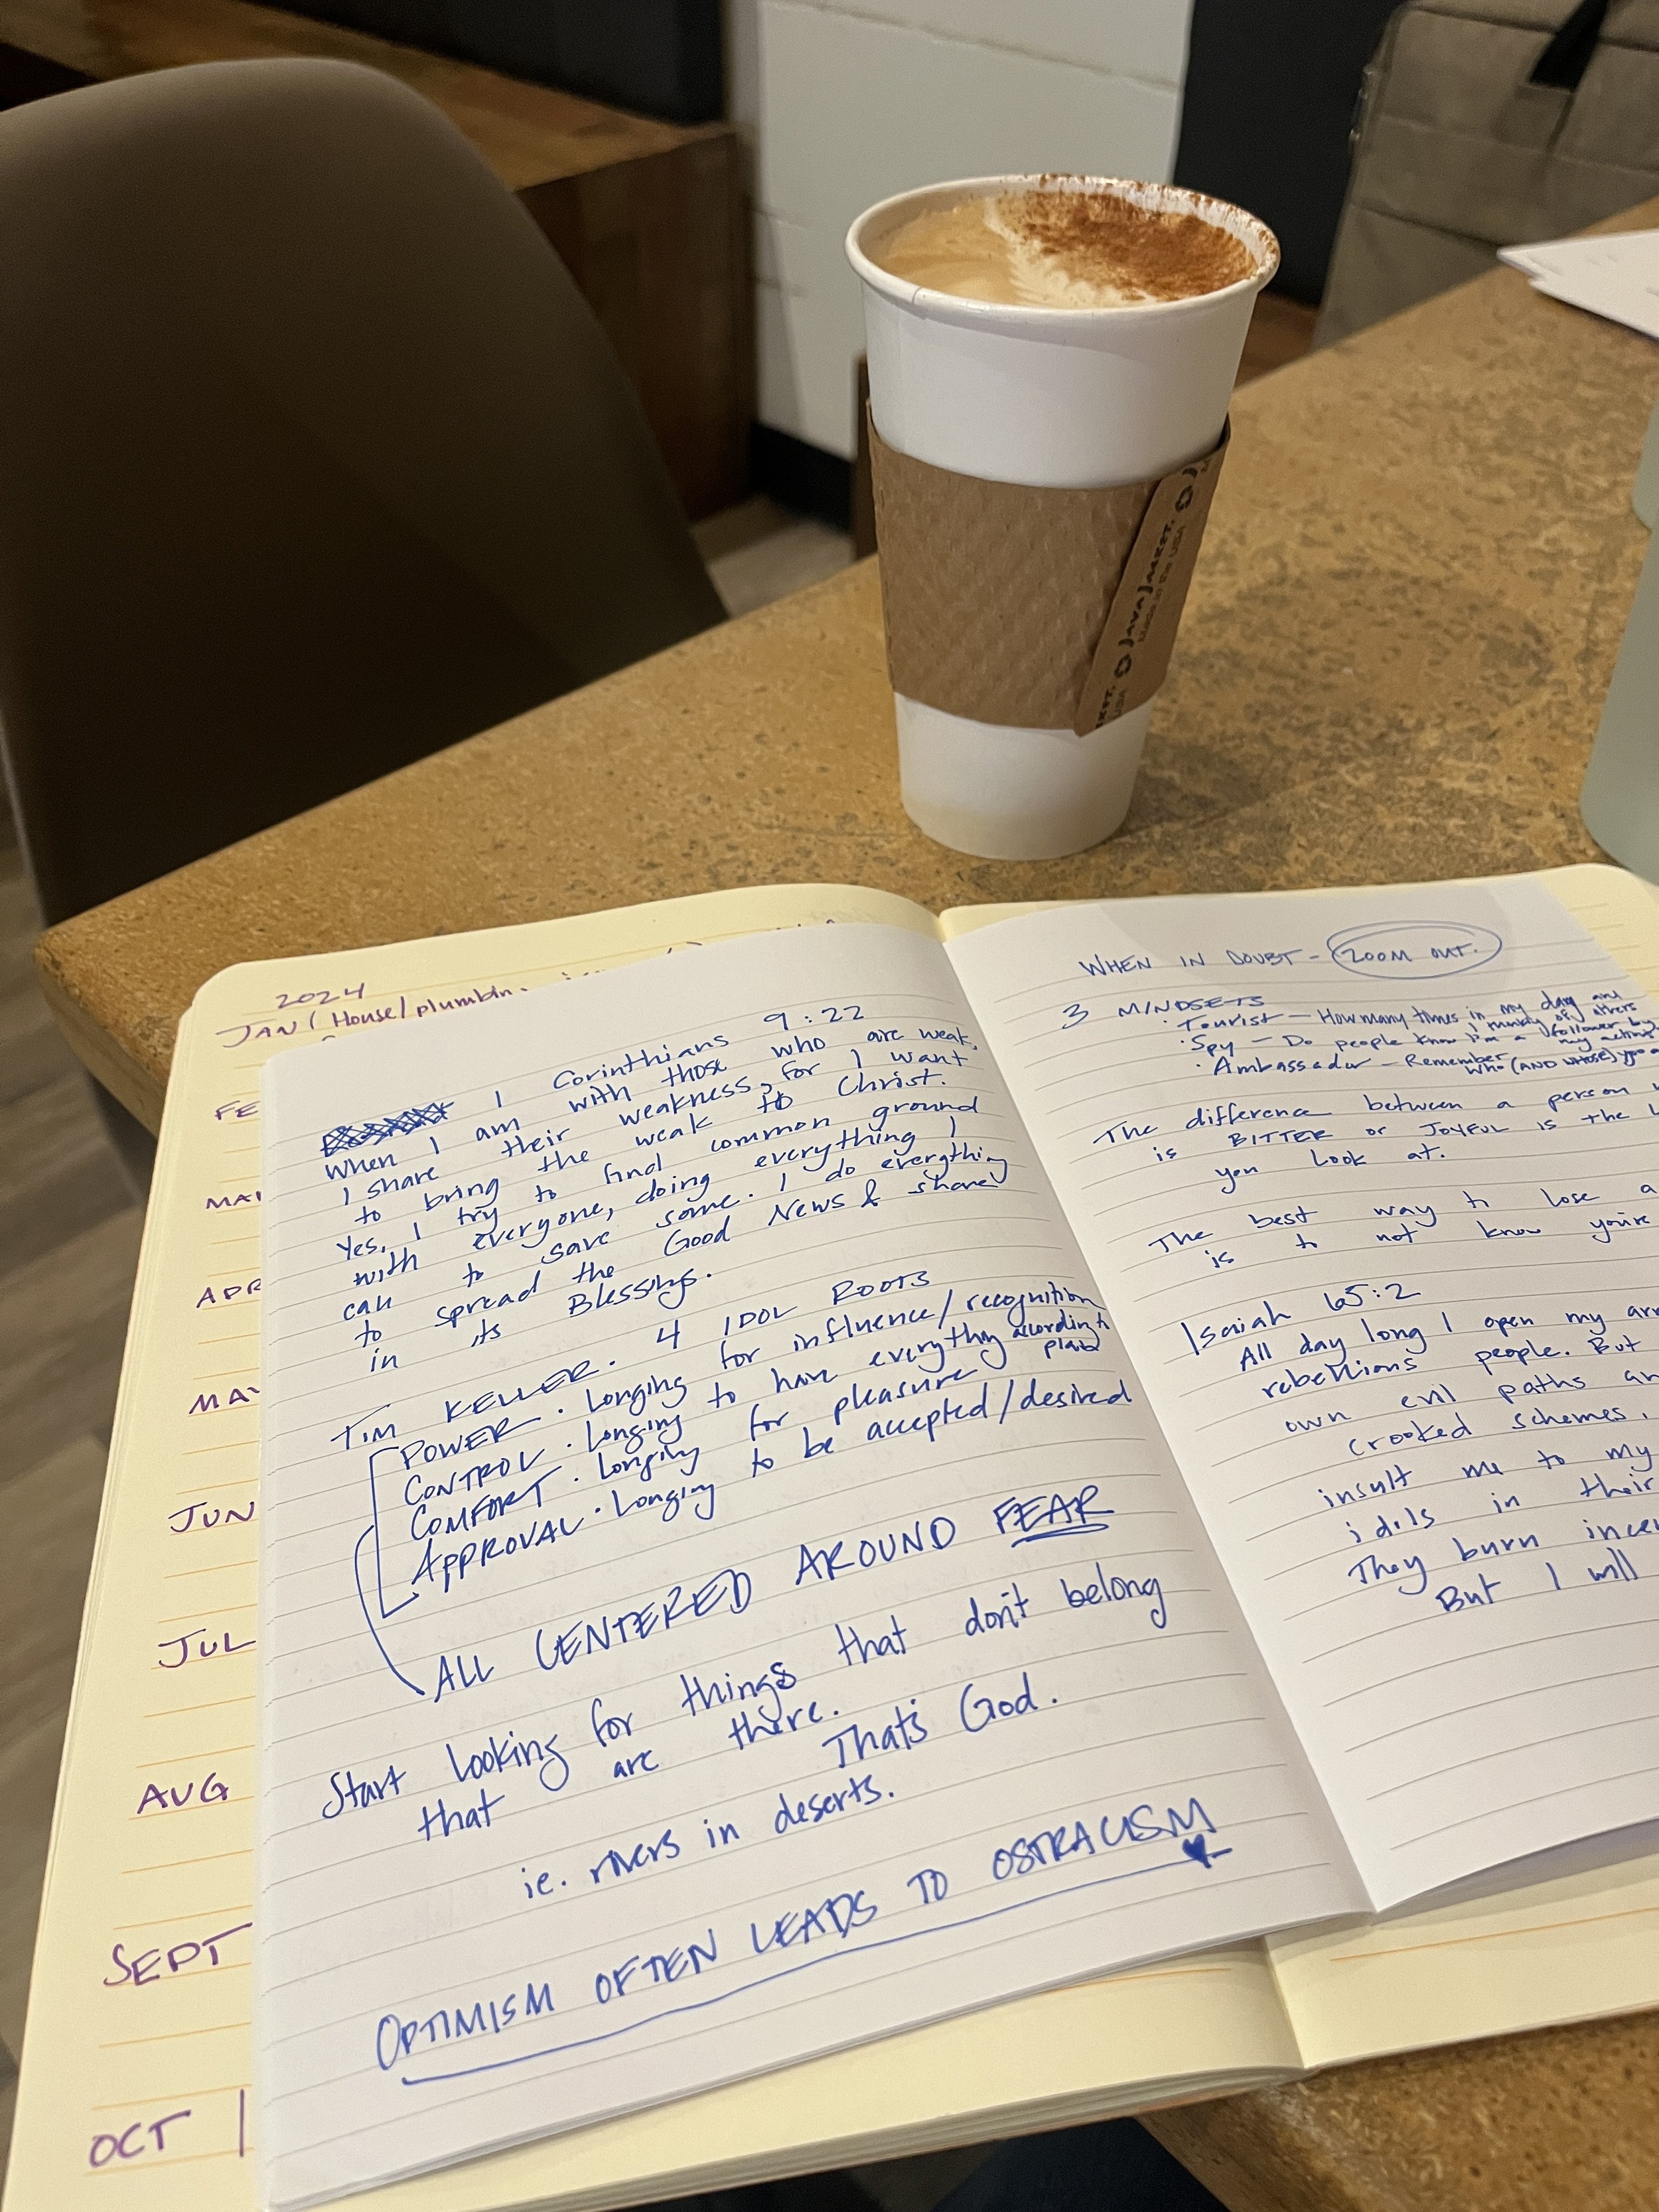 JAVA JACKET.
Made in the USA
2024
JAN ( House/plumbin
FE
MA
APR
MAY
JUN
JUL
AUG
SEPT
OCT
1 Corinthians 9:22
When I am with those who are weak,
I share their weakness, for I want
to bring the weak to Christ.
Yes, I try to find common ground
with everyone, doing everything I
can to save some. I do everything
to spread the Good News & share
in its Blessings.
TIM KELLER. 4 IDOL ROOTS
POWER. Longing for influence/recognition
CONTROL. Longing to have everything according to
plan
COMFORT. Longing for pleasure
APPROVAL. Longing to be accepted/desired
ALL CENTERED AROUND FEAR
Start looking for things that don't belong
that are there. That's God.
ie. rivers in deserts.
OPTIMISM OFTEN LEADS TO OSTRACISM
WHEN IN DOUBT - ZOOM OUT.
3 MINDSETS
· Tourist - How many times in my day am
I thinking of others
· Spy - Do people know I'm a follower by
my actions
· Ambassador - Remember
WHO (AND WHOSE) you a
The difference between a person
is BITTER or JOYFUL is the
you look at.
The best way to lose a
is to not know you're
Isaiah 65:2
All day long I open my ar
rebellious people. But
own evil paths an
crooked schemes.
insult me to my
idols in their
They burn incen
But I will